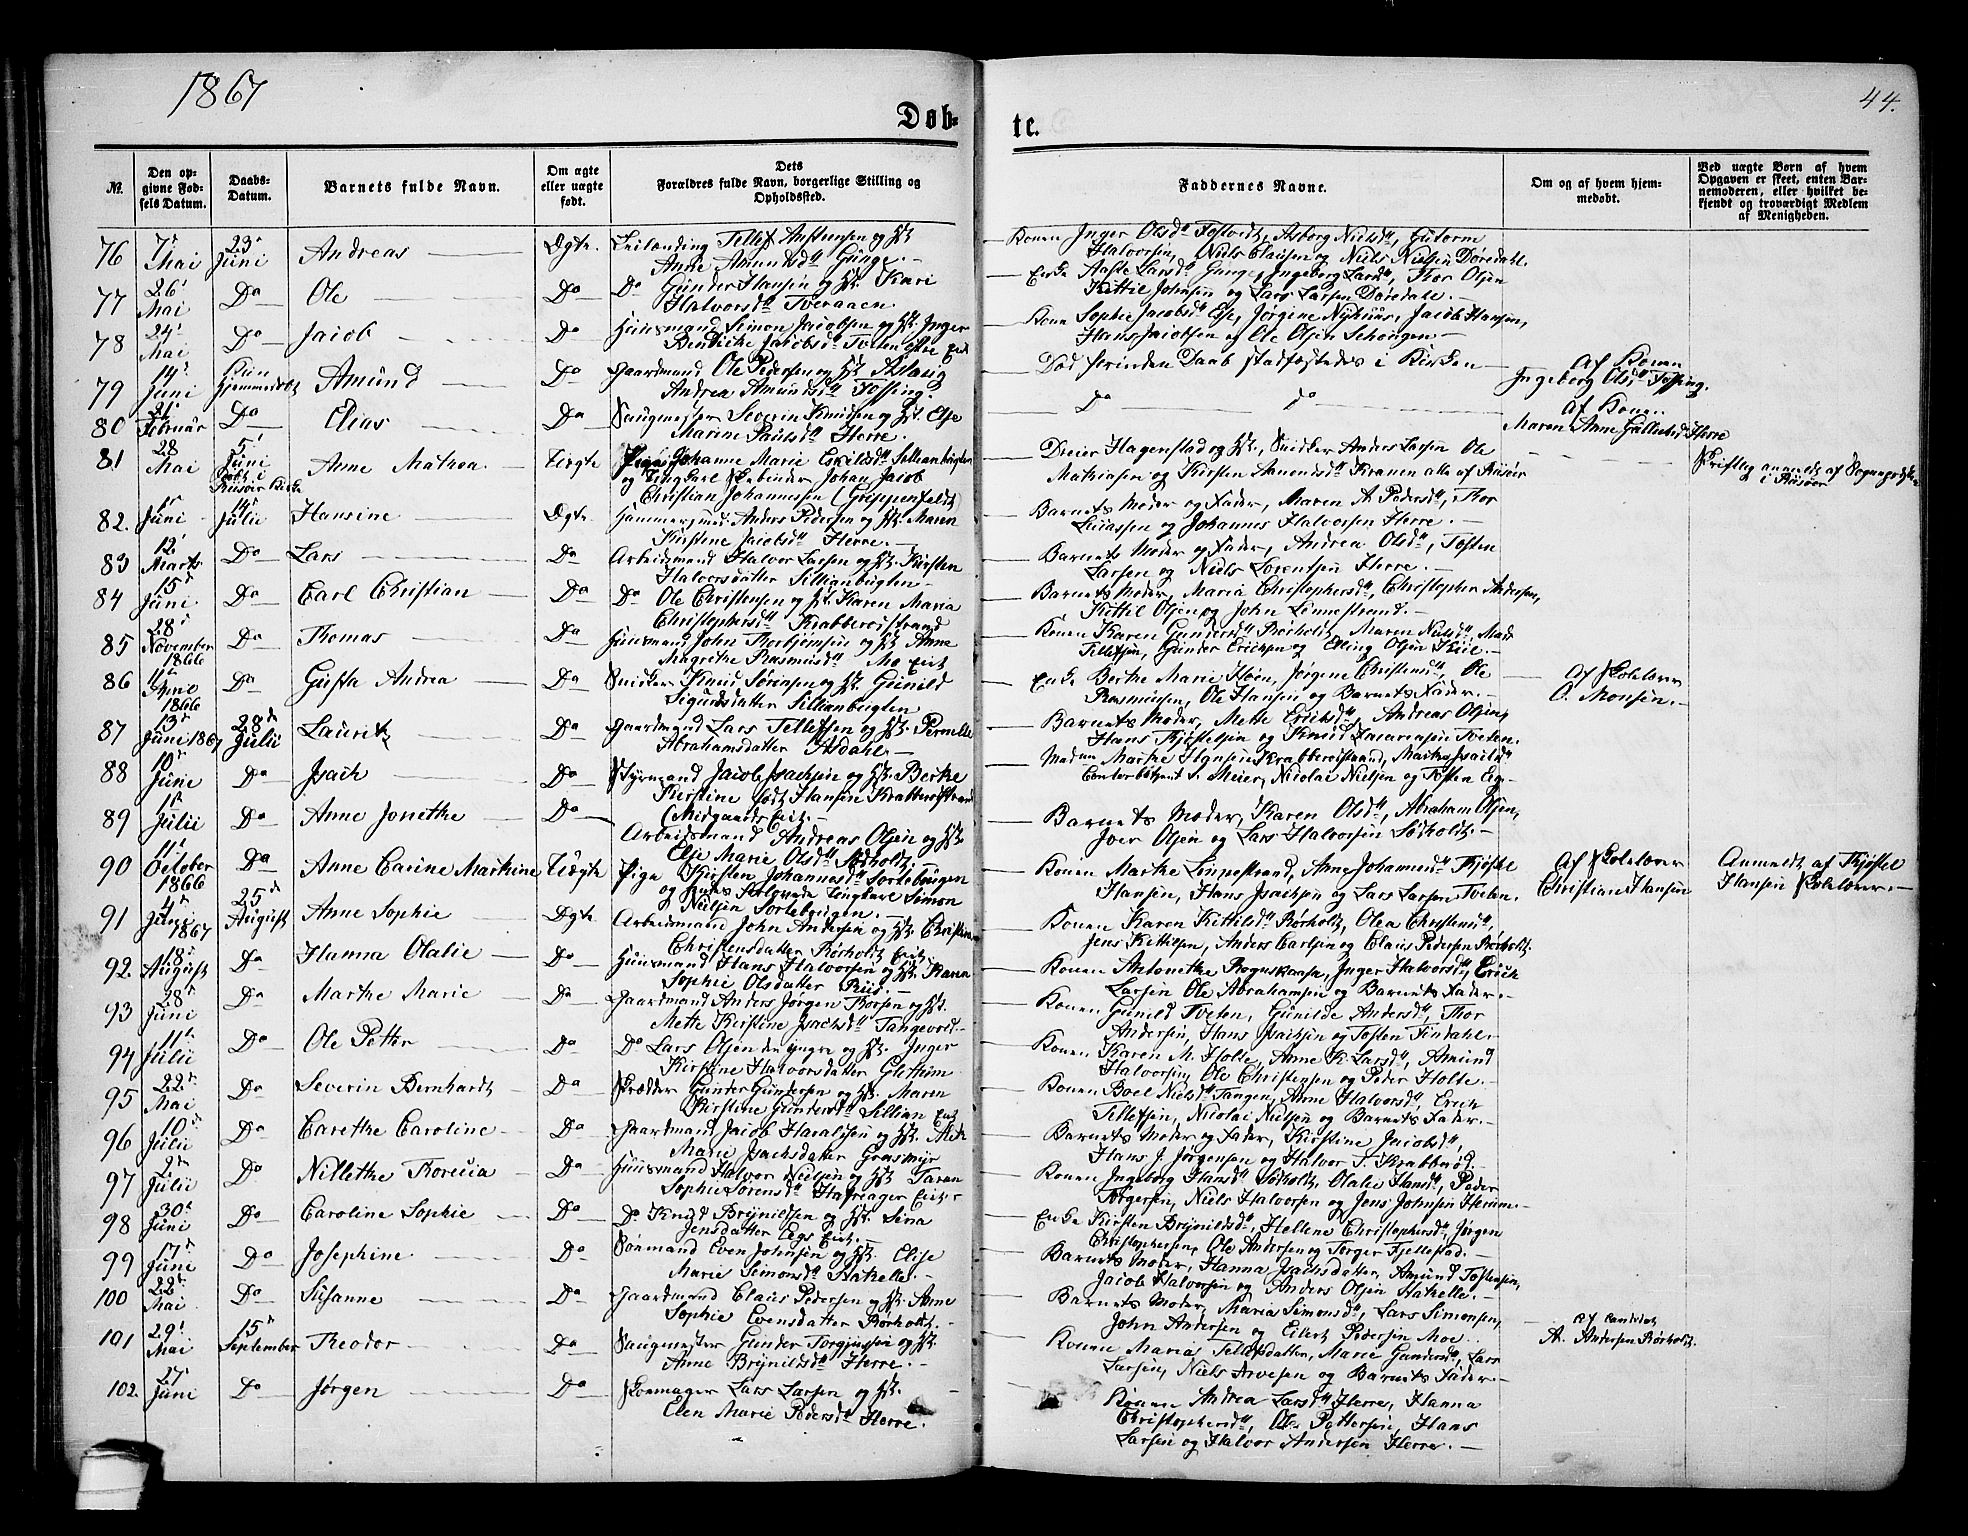 1867
44.
Døb-
te.
№.
Den op-
givne Fød-
sels Datum.
Daabs-
Datum.
Barnets fulde Navn.
Om ægte
eller uægte
født.
Dets
Forældres fulde Navn, borgerlige Stilling og
Opholdssted.
Faddernes Navne.
Om og af hvem hjem-
medøbt.
Ved uægte Børn af hvem
Opgaven er skeet, enten Bar-
nemoderen, eller hvilket be-
kjendt og troværdigt Medlem
af Menigheden.
76 7de Mai 23de Juni Andreas Ægte Leilænding Tellef Anstensen og Hst.
Anne Amundsdtr
Konen Inger Olsdtr Asborg Nielsdtr, Gutorm
Halvorsen, Niels Clausen og Niels Nielsen Døredahl.
77 26 Mai Do Ole Do Do Gunder Hansen og Hst. Kari
Halvorsdtr Tveraaen
Enke Aaste Larsdtr Gunge, Ingeborg Larsdtr, Thor Olsen
Kittil Johnsen og Lars Larsen Døredahl.
78 24 Mai Do Jacob Do Huusmand Simon Jacobsen og Hst. Inger
Bendicte Jacobsdtr Tveten
Kone Sophie Jacobsdtr Eje, Jørgine Nyhuus, Jacob Hansen,
Hans Jacobsen og Ole Olsen
79 14 Juni Hjemmedøbt Amund Do Gaardmand Ole Pedersen og Hst.
Andrea Amundsdtr Fossing.
Død forinden Daab stadfæstedes i Kirken
Af Konen
Ingeborg Olsdtr Fossing.
80 21 Februar Do Elias Do Saugmester Severin Knudsen og Hst. Else
Marine Paulsdtr Herre.
Do Do
Af Konen
Maren Anne Herre
81 28 Mai 5 Juni døbt i Risøer Kirke Anne Matrea Uægte Pige Johanne Marie Eskilsdtr Sillianbugten
og Ungkarl Johan Jacob
Christian Johannesen (Grippenfeldt)
Dreier Hagenstad og Hst, Snidker Anders Larsen Ole
Mathiasen og Kirsten Amundsdtr Kranen alle af Risøer
Skriftlig anmeldt af
i Risøer
82. 1 Juni 14 Julii Hansine Ægte Hammersmed Anders Pedersen og Hst. Maren
Kirstine Jacobsdtr Herre.
Barnets Moder og Fader, Maren A. Pedersdtr, Thor
Lucassen og Johannes Halvorsen Herre.
83 12 Marts Do Lars Do Arbeidsmand Halvor Larsen og Hst. Kirsten
Halvorsdatter Sillianbugten
Barnets Moder og Fader, Andrea Olsdtr, Tosten
Larsen og Niels Lorentsen Herre.
84 15 Juni Do Carl Christian Do Do Ole Christensen og Hst. Karen Maria
Christophersdtr Krabberødstrand
Barnets Moder, Maria Christophersdtr, Christopher Andersen,
Kittil Olsen og John Linnestrand.
85 28 November 1866 Do Thomas Do Huusmand John Thorbjørnsen og Hst. Anne
Magrethe Rasmusdtr Mo Eiet
Konen Karen Gundersdtr Rørholt, Maren Nielsdtr, Mads
Tellefsen, Gunder Erichsen og Elling Olsen
86 11 April 1866 Do Gusta Andrea Do Snidker Knud Sørensen og Hst. Gunild
Sigurdsdatter Sillianbugten
Enke Berthe Marie Høen, Jørgine Christensdtr, Ole
Rasmussen, Ole Hansen og Barnets Fader.
Af Skolelærer
O. Monsen.
87 13 Juni 1867 28de Julii Lauritz Do Gaardmand Lars Tellefsen og Hst. Pernelle
Abrahamsdatter Asdahl.
Barnets Moder, Mette Erichsdtr, Andreas Olsen,
Hans Kjøstelsen og Knud Zacariasen Tveten.
88 10 Juni Do Isach Do Styrmand Jacob Isachsen og Hst. Berthe
Kirstine født Hansen Krabberødstrand
(Midgaards Eiet.
Madm Marthe Hansen Krabberødstrand, Martha Isachsdtr
Contorbetjent S. Meier, Nicolai Nielsen og Tosten Eeg.
89 1 Julii Do Anne Jonethe Do Arbeidsmand Andreas Olsen og Hst.
Else Marie Olsdtr Sødholt.
Barnets Moder, Karen Olsdtr, Abraham Olsen,
Iver Olsen og Lars Halvorsen Sødholt.
90 11 October 1866 Do Anne Carine Marthine Uægte Pige Kirsten Johannesdtr Sortebugen
og Ungkarl Simon
Nielsen Sortebugen.
Konen Marthe Linnestrand, Anne Johannesdtr, Kjøstel
Hansen, Hans Isachsen og Lars Larsen Tveten.
Af Skolelærer
Christian Hansen
Anmeldt af Kjøstel
Hansen Skolelærer.
91 4 Juni 1867 25de August Anne Sophie Ægte Arbeidsmand John Andersen og Hst. Christine
Christensdatter Rørholt Eiet.
Konen Karen Kittilsdtr Rørholt, Olea Christensdtr,
Jens Kittilsen, Anders Carlsen og Claus Pedersen Rørholt.
92. 18 August Do Hanna Olalie Do Huusmand Hans Halvorsen og Hst. Karen
Sophie Olsdatter Riis.
Konen Antonethe Rognskaasa, Inger Halvorsdtr, Erich
Larsen Ole Abrahamsen og Barnets Fader.
93 28 Juni Do Marthe Marie Do Gaardmand Anders Jørgen Torsen og Hst.
Mette Kirstine Isachsdtr Tangevald.
Konen Gunild Tveten, Gunilde Andersdtr, Thor
Andersen, Hans Isachsen og Tosten Findahl.
94 11te Julii Do Ole Petter Do Do Lars Olsen den yngre og Hst. Inger
Kirstine Halvorsdatter Gletheim
Konen Karen M. Holte, Anne K. Larsdtr, Amund
Halvorsen, Ole Christensen og Peder Holte.
95 22de Mai Do Severin Bernhardt Do Skrædder Gunder Gundersen og Hst. Maren
Kirstine Gundersdtr Sillian Eiet
Konen Boel Nielsdtr Tangen, Anne Halvorsdtr, Erich
Tellefsen, Nicolai Nielsen og Barnets Fader.
96 10de Julii Do Carethe Caroline Do Gaardmand Jacob Haraldsen og Hst.
Marie Isachsdatter Grasmyr
Barnets Moder og Fader, Kirstine Jacobsdtr,
Hans J. Jørgensen og Halvor T. Krabberød.
97 2de Julii Do Nillethe Torecia Do Huusmand Halvor Nielsen og Hst. Karen
Sophie Sørensdtr Eiet
Konen Ingeborg Hansdtr Sødholt, Olalie Hansdtr, Peder
Torgersen, Niels Halvorsen og Jens Johnsen Herum.
98 30 Juni Do Caroline Sophie Do Do Knud Brynildsen og Hst. Sina
Jensdatter Eegs Eiet.
Enke Kirsten Brynildsdtr, Hellene Christophersdtr, Jørgen
Christophersen, Ole Andersen og Torger Fjellestad.
99 17de Juni Do Josephine Do Sømand Even Johnsen og Hst. Elise
Marie Simonsdtr
Barnets Moder, Hanna Isachsdatter, Amund Tostensen,
Jacob Halvorsen og Anders Olsen
100 22de Mai Do Susanne Do Gaardmand Claus Pedersen og Hst. Anne
Sophie Evensdatter Rørholt.
Barnets Moder, Maria Simonsdtr, Lars Simonsen,
John Andersen og Eilert Pedersen Moe.
101 29 Mai 15de September Theodor Do Saugmester Gunder Torgjussen og Hst.
Anne Brynildsdtr Herre.
Konen Maria Tellefsdatter, Marie Gundersdtr, Lars
Larsen, Niels Arvesen og Barnets Fader.
Af Candidat
A. Andersen Rørholt.
102. 27 Juni Do Jørgen Do Skomager Lars Larsen og Hst.
Elen Marie Pedersdtr Herre.
Konen Andrea Larsdtr Herre, Hanna
Christophersdtr, Ole Pettersen, Hans
Larsen og Halvor Andersen Herre.